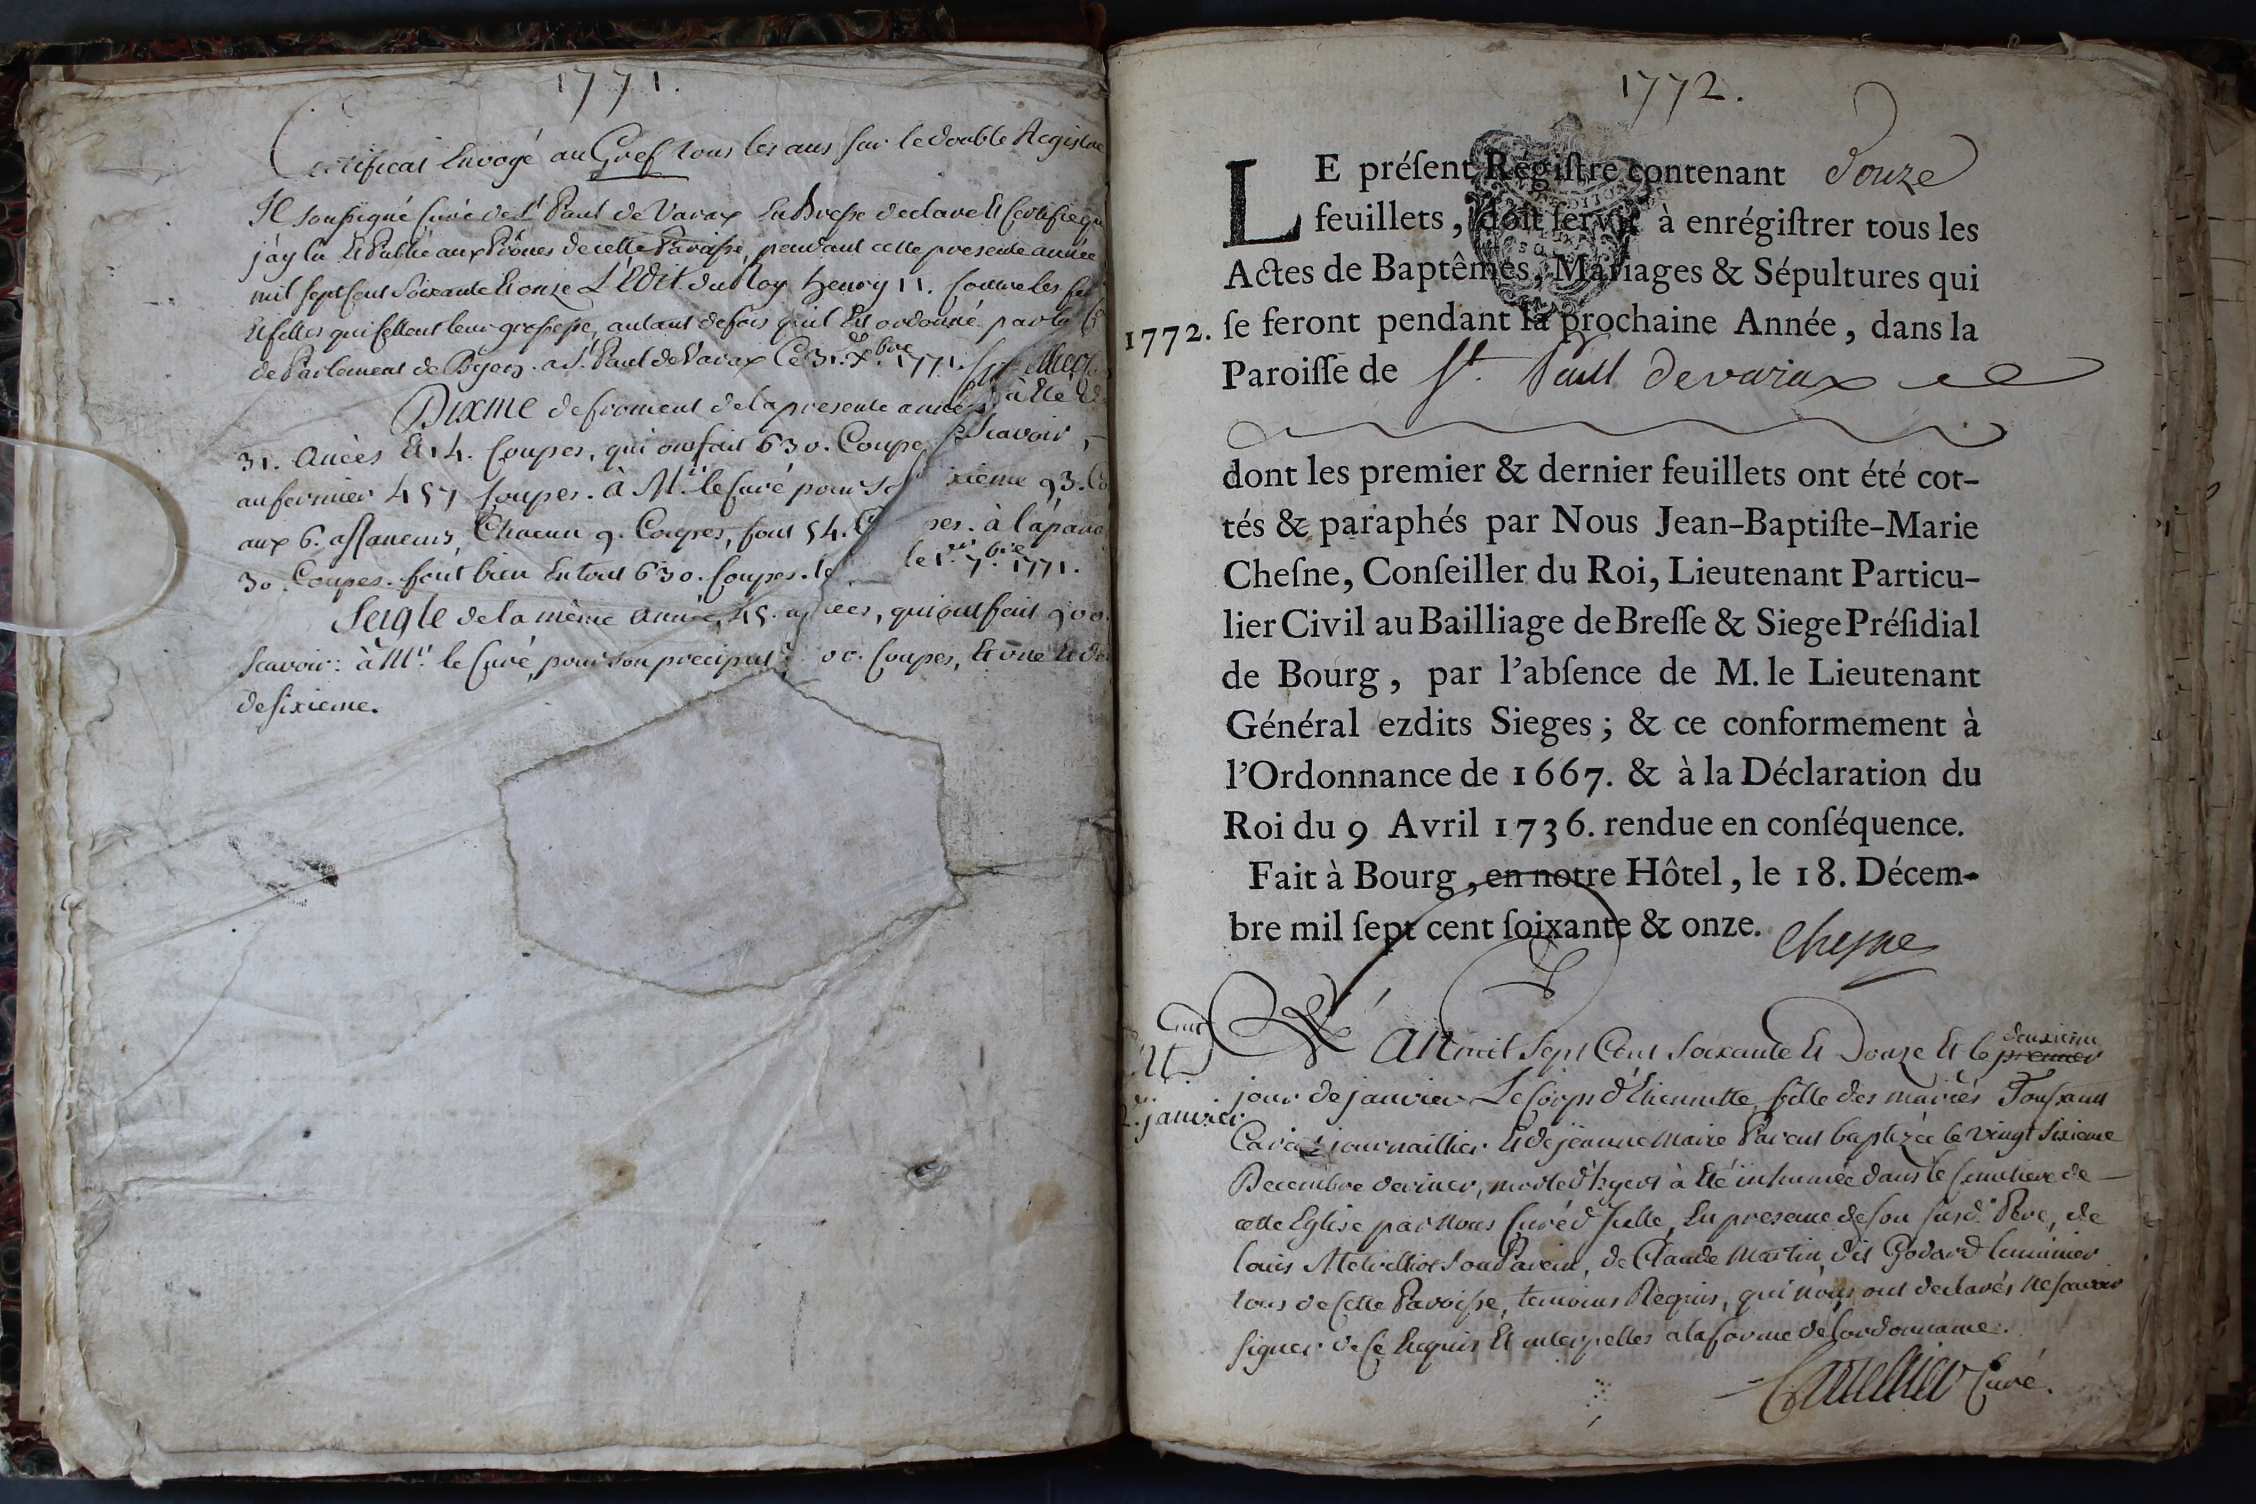 1771.
Certificat Envoyé au Gref tous les ans sur le double Registre
Je soussigné Curé de St Paul de Varax En Bresse declare Et Certifie que
j'ay lu Et Publié aux Prônes de cette Paroisse, pendant cette presente année
mil sept Cent Soixante Et onze L'Edit du Roy henry II. Contre les
Et filles qui Cellent leur grossesse, autant de fois qu'il Est ordonné par la
de Parlement de Dijon. a St. Paul de Varax Ce 31. Xbre 1771.
Dixme de froment de la presente année à Eté
31. Anées Et 14. Coupes, qui ont fait 630. Coupes Scavoir,
au fermier 457 Coupes. à Mr. le Curé pour Sixieme 93.
aux 6. affaneurs, Chacun 9. Coupes, font 54. à l'
30. Coupes. font bien En tout 630. Coupes. le 1er. 7bre 1771.
Seigle de la même année, 45. anées, qui ont fait 900.
Scavoir: à Mr. le Curé, pour son preciput Coupes, Et
de sixieme.
1772.
LE préſent Régiſtre contenant douze
feuillets, doit ſervir à enrégiſtrer tous les
Actes de Baptêmes, Mariages & Sépultures qui
1772. ſe feront pendant la prochaine Année, dans la
Paroiſſe de St. Paul devarax
dont les premier & dernier feuillets ont été cot-
tés & paraphés par Nous Jean-Baptiſte-Marie
Cheſne, Conſeiller du Roi, Lieutenant Particu-
lier Civil au Bailliage de Breſſe & Siege Préſidial
de Bourg, par l'abſence de M. le Lieutenant
Général ezdits Sieges; & ce conformement à
l'Ordonnance de 1667. & à la Déclaration du
Roi du 9 Avril 1736. rendue en conſéquence.
Fait à Bourg, en notre Hôtel, le 18. Décem-
bre mil ſept cent ſoixante & onze. Chesne
L'An mil Sept Cent Soixante Et Douze Et le premier deuxieme
jour de janvier Le Corps d'Etiennette fille des mariés Toussaint
2. janvier
journaillier Et de jeanne Marie Parent baptizée le vingt Sixieme
Decembre dernier, morte d'hyer à Eté inhumée dans le Cimetiere de
cette Eglise par Nous Curé d'Icelle, En presence de son susd. Pere, de
louis son Parein, de Claude Martin, dit Godard luminier
tous de Cette Paroisse, temoins Requis, qui nous ont declarés ne scavoir
signer de Ce Enquis Et interpelles a la forme de l'ordonnance.
Curé.